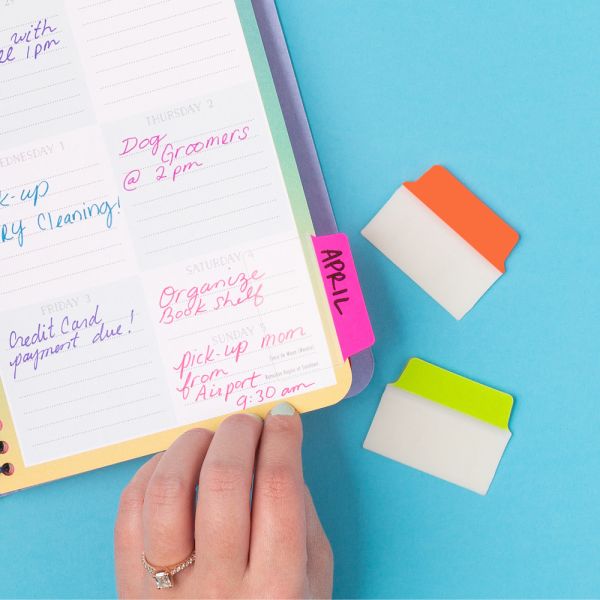 with
1pm
THURSDAY 2
Dog
Groomers
@ 2pm
WEDNESDAY 1
Cleaning!
SATURDAY 4
Organize
Book shelf
APRIL
FRIDAY 3
Credit Card
payment due!
SUNDAY 5
pick-up mom
from
Airport
9:30 am